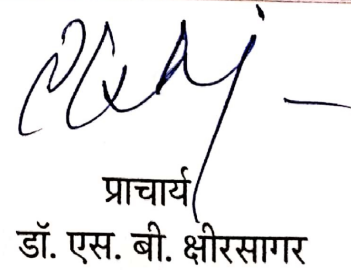 प्राचार्य
डॉ. एस. बी. क्षीरसागर